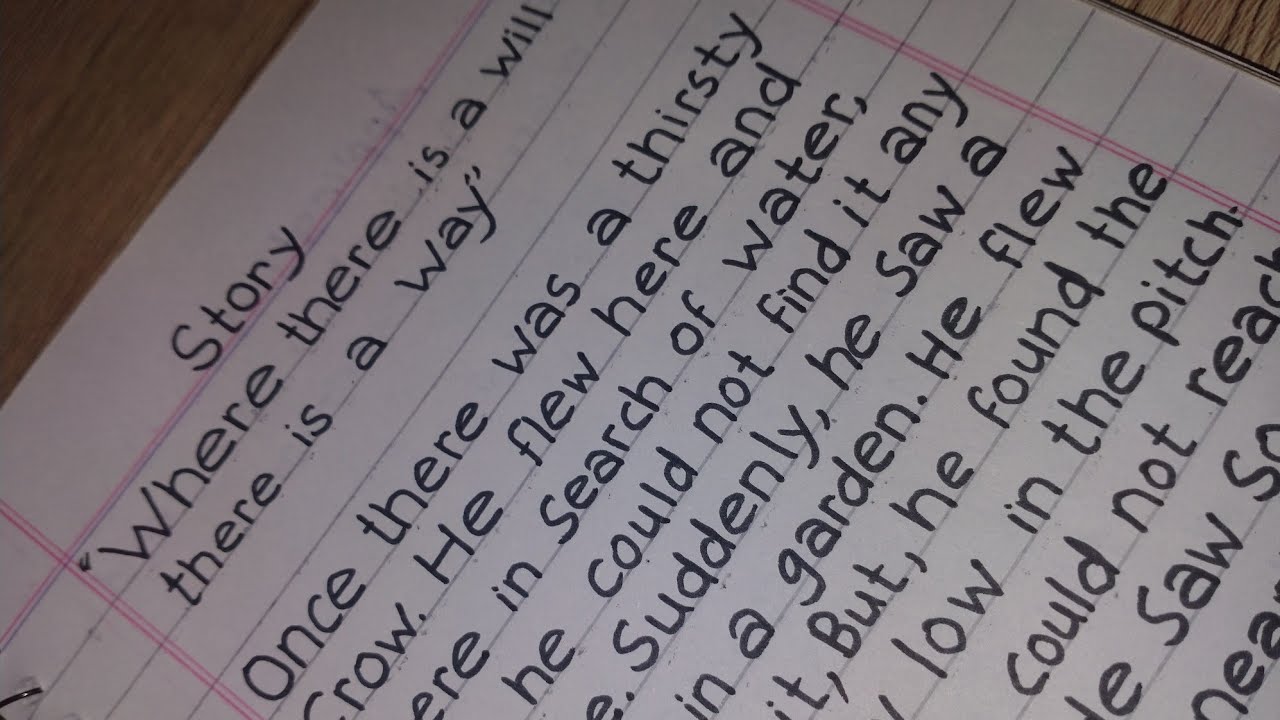 Story
"Where there is a will
there is a way"
Once there was a thirsty
Crow. He flew here and
in Search of water,
he could not find it any
Suddenly, he Saw a
in a garden. He flew
it, But, he found the
low in the pitch.
could not reach
Saw